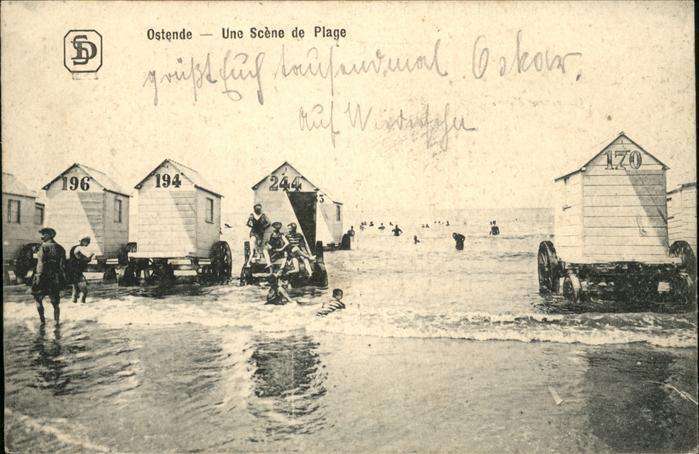 SD
Ostende — Une Scène de Plage
grüßt Euch tausendmal Oskar.
Auf Wiedersehn
196
194
244
3
170